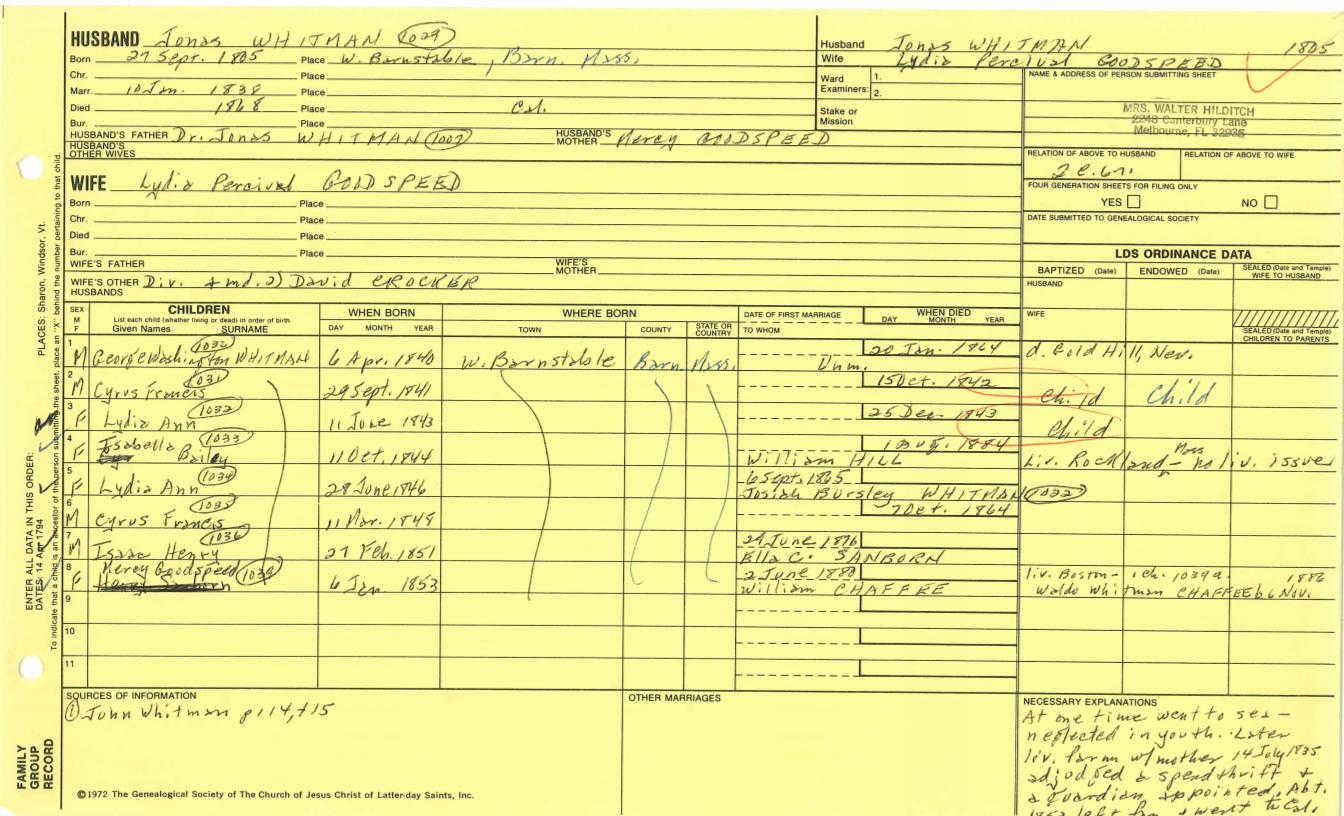 HUSBAND Jonas WHITMAN 1029
Born 27 Sept. 1805 Place W. Barnstable, Barn. Mass.
Chr. Place
Marr. 10 Jan. 1838 Place
Died 1868 Place Cal.
Bur. Place
HUSBAND'S FATHER Dr. Jonas WHITMAN HUSBAND'S MOTHER Mercy GOODSPEED
HUSBAND'S OTHER WIVES
Husband Jonas WHITMAN 1805
Wife Lydia Percival GOODSPEED
Ward Examiners: 1.
2.
Stake or Mission
NAME & ADDRESS OF PERSON SUBMITTING SHEET
MRS. WALTER HILDITCH
2248 Canterbury Lane
Melbourne, FL 32935
RELATION OF ABOVE TO HUSBAND RELATION OF ABOVE TO WIFE
FOUR GENERATION SHEETS FOR FILING ONLY
YES NO
DATE SUBMITTED TO GENEALOGICAL SOCIETY
WIFE Lydia Percival GOODSPEED
Born Place
Chr. Place
Died Place
Bur. Place
WIFE'S FATHER WIFE'S MOTHER
WIFE'S OTHER HUSBANDS Div. & md. 2) David CROCKER
LDS ORDINANCE DATA
BAPTIZED (Date) ENDOWED (Date) SEALED (Date and Temple) WIFE TO HUSBAND
HUSBAND
WIFE
SEALED (Date and Temple) CHILDREN TO PARENTS
SEX M F CHILDREN List each child (whether living or dead) in order of birth Given Names SURNAME WHEN BORN DAY MONTH YEAR WHERE BORN TOWN COUNTY STATE OR COUNTRY DATE OF FIRST MARRIAGE TO WHOM WHEN DIED DAY MONTH YEAR
1 M George Washington WHITMAN 6 Apr. 1840 W. Barnstable Barn. Mass. Unm. 20 Jan. 1864 d. Gold Hill, Nev.
2 M Cyrus Francis 1031 29 Sept. 1841 15 Oct. 1842 Child Child
3 F Lydia Ann 1032 11 June 1843 25 Dec. 1843 Child
4 F Isabella Bailey 1033 11 Oct. 1844 William HILL 1884 Liv. Rockland Mass - no liv. issue
5 F Lydia Ann 1034 28 June 1846 6 Sept. 1865 Josiah Bursley WHITMAN 1022
6 M Cyrus Francis 1035 11 Mar. 1848 7 Oct. 1864
7 M Isaac Henry 1036 27 Feb. 1851 24 June 1876 Ella C. SANBORN
8 F Mercy Goodspeed 6 Jan. 1853 2 June 1880 William CHAFFEE liv. Boston - 1 ch. 1039a. 1886
Waldo Whitman CHAFFEE b 6 Nov.
9
10
11
SOURCES OF INFORMATION
① John Whitman p 114, 115
OTHER MARRIAGES
NECESSARY EXPLANATIONS
At one time went to sea -
neglected in youth. Later
liv. farm w/mother 14 July 1835
adjudged a spendthrift &
a guardian appointed. Abt.
left & went to Cal.
©1972 The Genealogical Society of The Church of Jesus Christ of Latter-day Saints, Inc.
FAMILY GROUP RECORD
ENTER ALL DATA IN THIS ORDER:
DATES: 14 Apr 1794 PLACES: Sharon, Windsor, Vt.
To indicate that a child is an ancestor of the person submitting the sheet, place an "X" behind the number pertaining to that child.